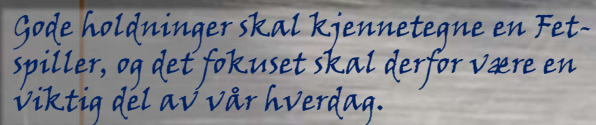 Gode holdninger skal kjennetegne en Fet-
spiller, og det fokuset skal derfor være en
viktig del av vår hverdag.